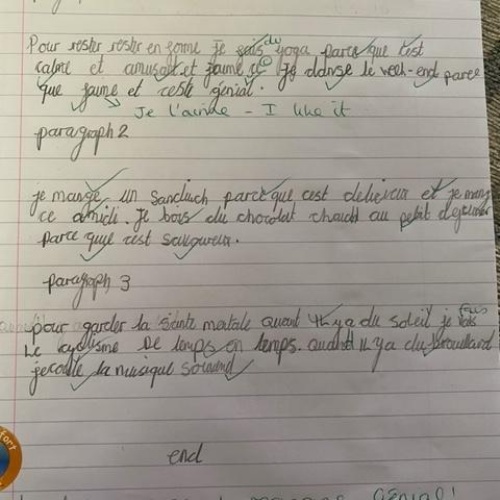 du
Pour rester rester en forme je sais yoga parce que c'est
calme et amusant et j'aime ce Je danse le week-end parce
que jaime et ceste génial.
Je l'aime - I like it
paragraph 2
je mange un sandwich parce que cest delicieux et je mang
ce amidi. Je bois du chocolat chaud au petit dejeuner
parce que cest savoureux.
paragraph 3
fais
pour garder la santé mentale quant il y a du soleil je
le cyclisme De temps en temps. quand il y a du brouillard
jecoute la musique souvent
end
Génial!